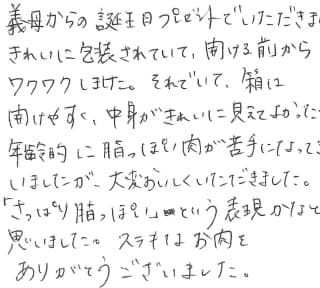 義母からの誕生日プレゼントでいただきま
きれいに包装されていて、開ける前から
ワクワクしました。それでいて、箱は
開けやすく、中身がきれいに見えてよかった
年齢的に脂っぽい肉が苦手になってき
いましたが、大変おいしくいただきました。
「さっぱり脂っぽい」という表現かなと
思いました。ステキなお肉を
ありがとうございました。